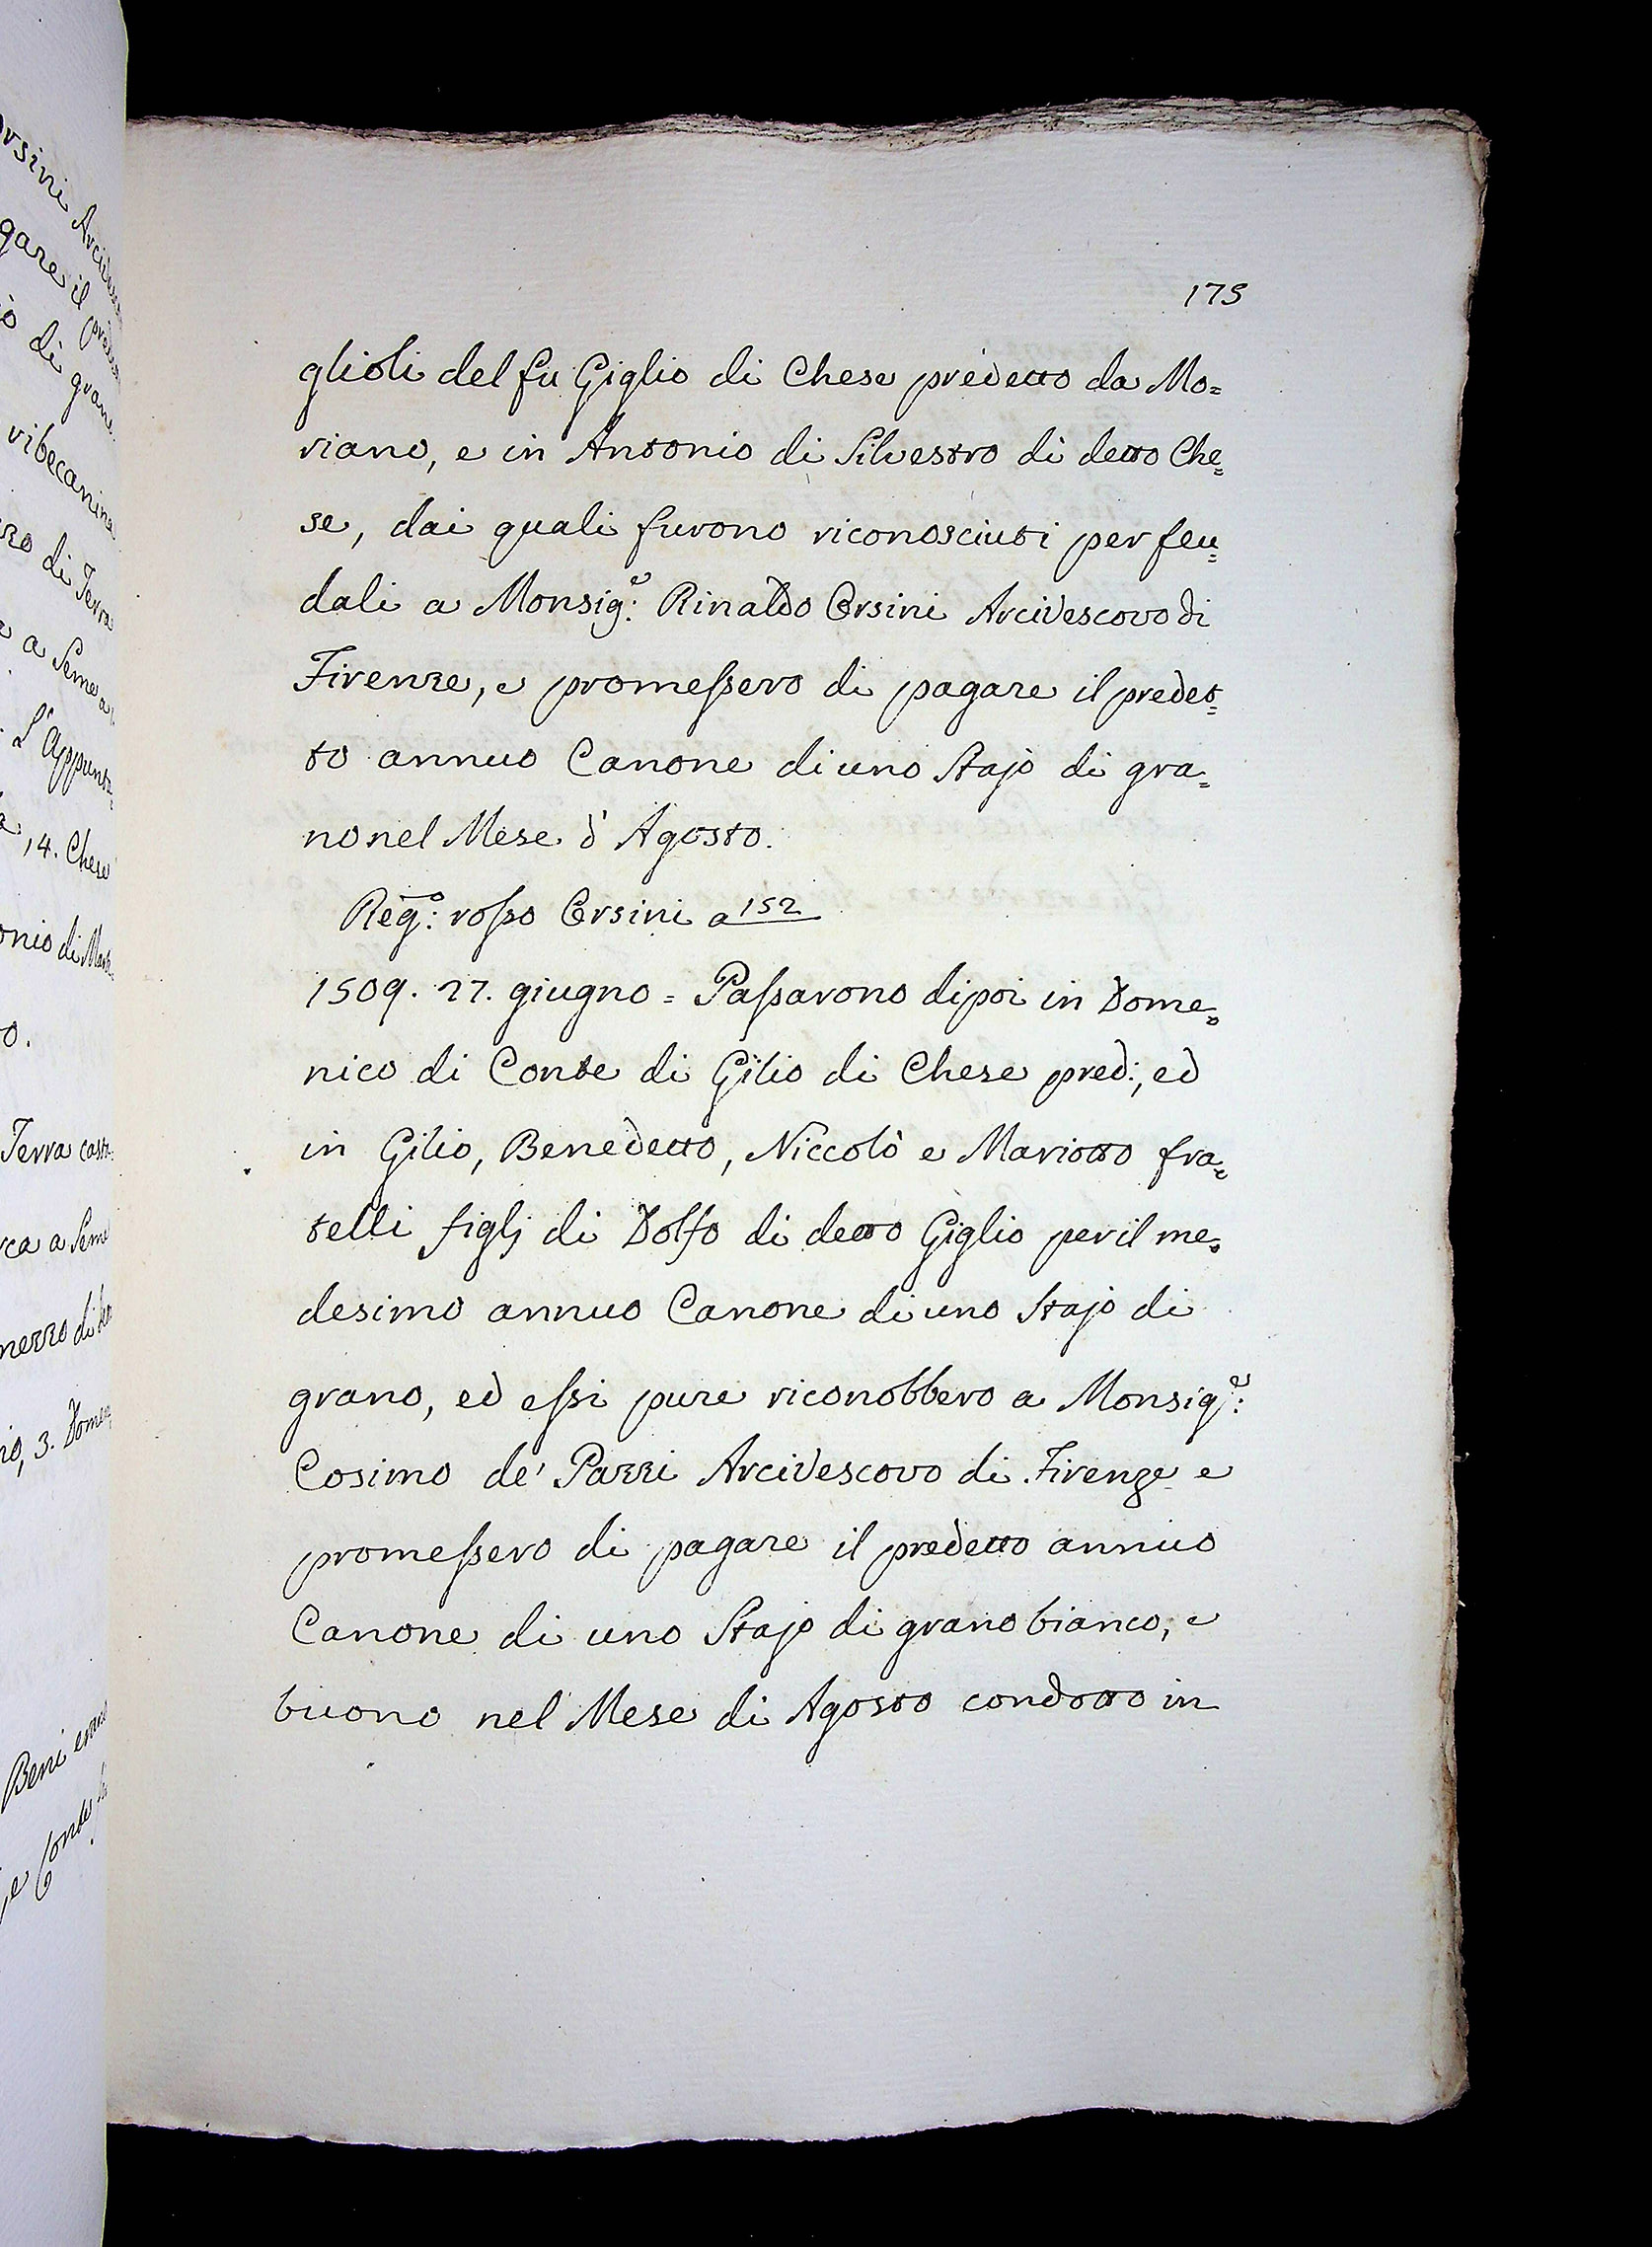 175
glioli del fu Giglio di Chese predetto da Mo=
riano, e in Antonio di Silvestro di detto Che=
se, dai quali furono riconosciuti per feu=
dali a Monsig.e: Rinaldo Orsini Arcivescovo di
Firenze, e promessero di pagare il predet=
to annuo Canone di uno Stajo di gra=
no nel Mese d'Agosto.
Reg.o: rosso Orsini a 152
1509. 27. giugno = Passarono dipoi in Dome=
nico di Conte di Gilio di Chese pred:, ed
in Gilio, Benedetto, Niccolò e Mariotto fra=
telli figlj di Dolfo di detto Giglio per il me=
desimo annuo Canone di uno Stajo di
grano, ed essi pure riconobbero a Monsig.e:
Cosimo de' Pazzi Arcivescovo di Firenze e
promessero di pagare il predetto annuo
Canone di uno Stajo di grano bianco, e
buono nel Mese di Agosto condotto in